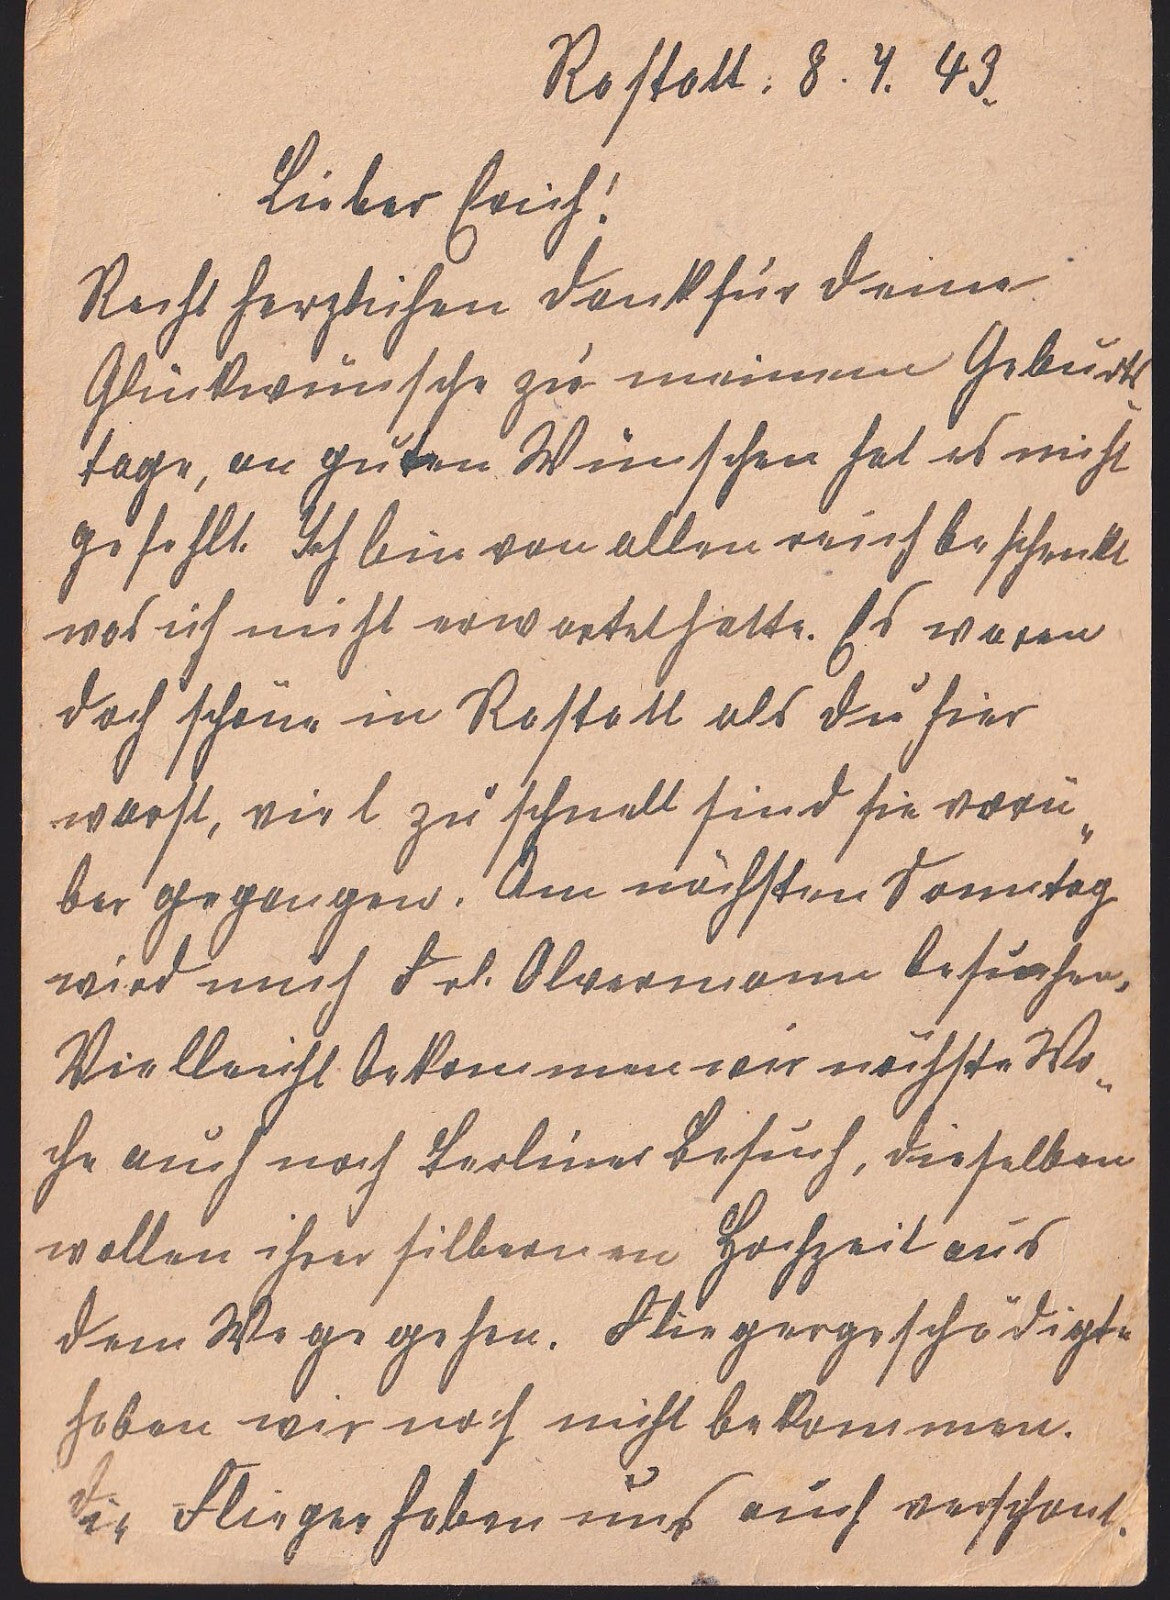 Rastatt. 8. 7. 43.
Lieber Erich!
Recht herzlichen Dank für Deine
Glückwünsche zu meinem Geburts-
tage, an guten Wünschen hat es nicht
gefehlt. Ich bin von allen reich beschenkt
was ich nicht erwartet hatte. Es waren
doch schöne in Rastatt als Du hier
warst, viel zu schnell sind sie vorü-
ber gegangen. Am nächsten Sonntag
wird mich Frl. Olvermann besuchen.
Vielleicht bekommen wir nächste Wo-
che auch noch Berliner Besuch, dieselben
wollen ihrer silbernen Hochzeit aus
dem Wege gehen. Fliegergeschädigte
haben wir noch nicht bekommen.
Die Flieger haben uns auch verschont.